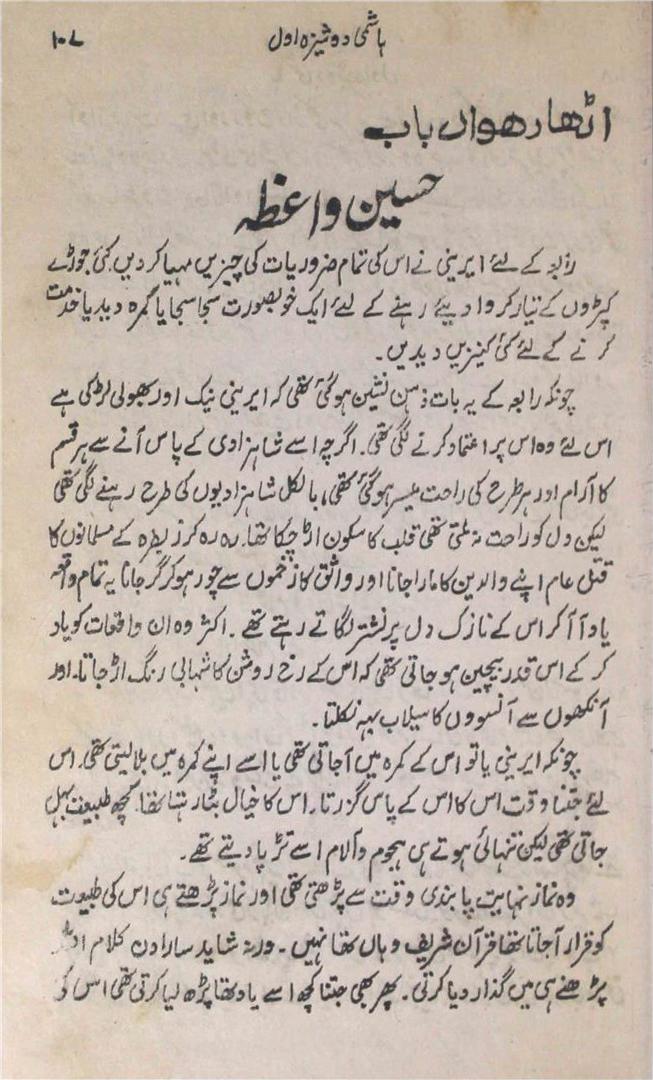 ہاشمی دوشیزہ اول
۱۰۷
اٹھارھواں باب
حسین واعظہ
رابعہ کے لئے ایرینی نے اس کی تمام ضروریات کی چیزیں مہیا کر دیں کئی جوڑے
کپڑوں کے تیار کروا دیئے رہنے کے لئے ایک خوبصورت سجا سجایا کمرہ دیدیا خدمت
کرنے کے لئے کئی کنیزیں دیدیں۔
چونکہ رابعہ کے یہ بات ذہن نشین ہو گئی تھی کہ ایرینی نیک اور بھولی لڑکی ہے
اس لئے وہ اس پر اعتماد کرنے لگی تھی۔ اگرچہ اسے شاہزادی کے پاس آنے سے ہر قسم
کا آرام اور ہر طرح کی راحت میسر ہو گئی تھی، بالکل شاہزادیوں کی طرح رہنے لگی تھی
لیکن دل کو راحت نہ ملتی تھی قلب کا سکون اڑ چکا تھا۔ رہ رہ کر زبطرہ کے مسلمانوں کا
قتل عام اپنے والدین کا مارا جانا اور واثق کا زخموں سے چور ہو کر گر جانا یہ تمام واقعہ
یاد آ آ کر اس کے نازک دل پر نشتر لگاتے رہتے تھے۔ اکثر وہ ان واقعات کو یاد
کر کے اس قدر بیچین ہو جاتی تھی کہ اس کے رخ روشن کا شہابی رنگ اڑ جاتا۔ اور
آنکھوں سے آنسووں کا سیلاب بہہ نکلتا۔
چونکہ ایرینی یا تو اس کے کمرہ میں آ جاتی تھی یا اسے اپنے کمرہ میں بلا لیتی تھی۔ اس
لئے جتنا وقت اس کا اس کے پاس گزرتا۔ اس کا خیال بٹا رہتا تھا۔ کچھ طبیعت بہل
جاتی تھی لیکن تنہائی ہوتے ہی ہجوم و آلام اسے تڑپا دیتے تھے۔
وہ نماز نہایت پابندی وقت سے پڑھتی تھی اور نماز پڑھتے ہی اس کی طبیعت
کو قرار آ جاتا تھا قرآن شریف وہاں تھا نہیں۔ ورنہ شاید سارا دن کلام اللہ
پڑھنے ہی میں گذار دیا کرتی۔ پھر بھی جتنا کچھ اسے یاد تھا پڑھ لیا کرتی تھی اس کی